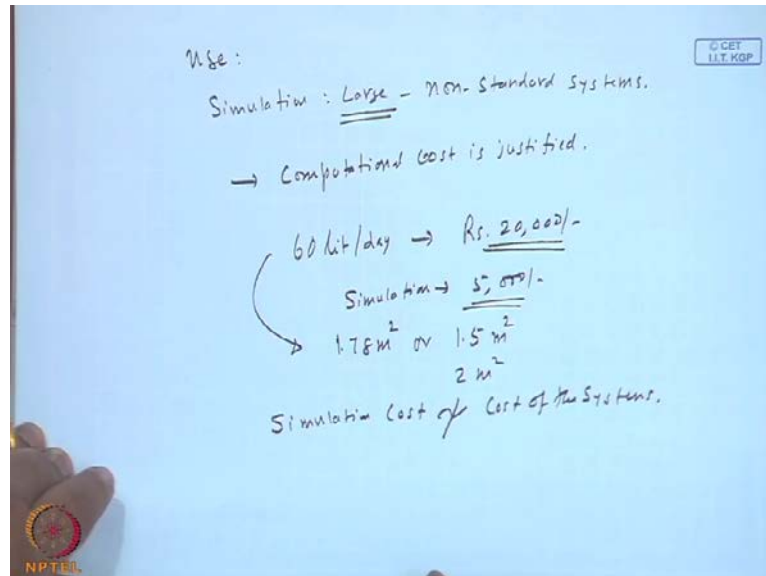 Use :
© CET
I.I.T. KGP
Simulation : Large - non-standard systems.
→ Computational cost is justified.
60 lit/day → Rs. 20,000/-
Simulation → 5,000/-
1.78 m² or 1.5 m²
2 m²
Simulation Cost Cost of the Systems.
NPTEL